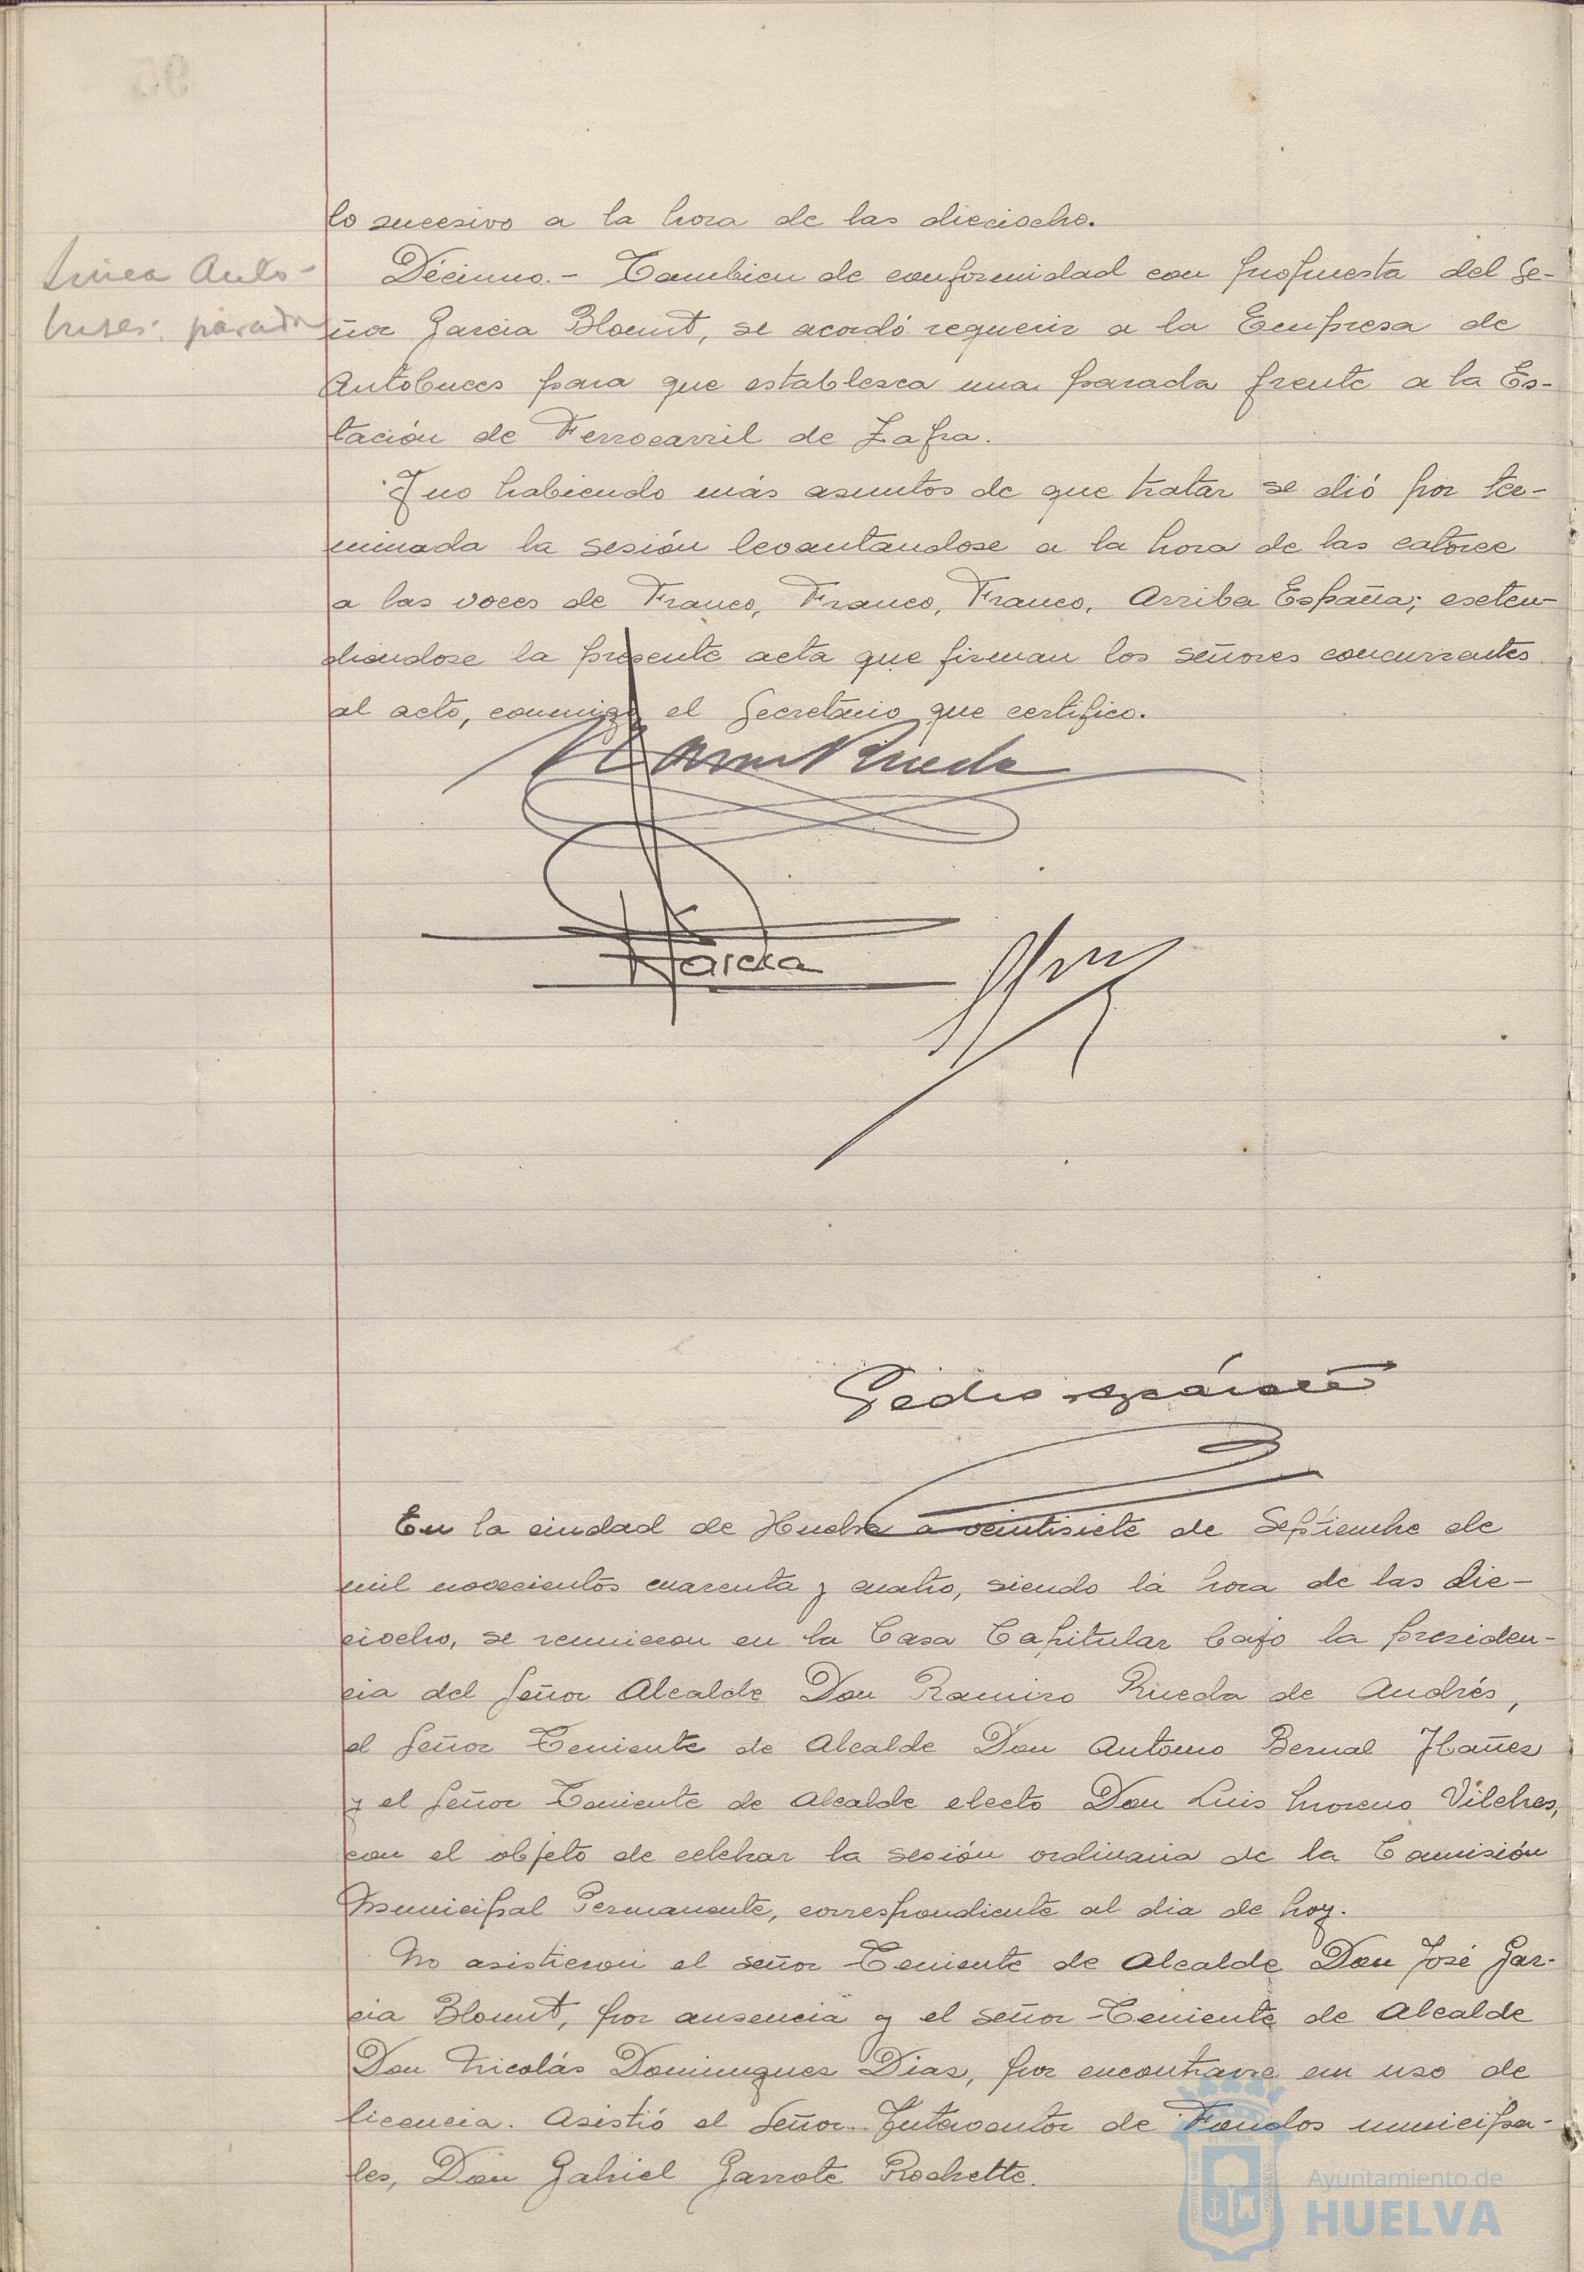 lo sucesivo a la hora de las dieciocho.
Linea Auto-
buses: parada
Décimo.- Tambien de conformidad con propuesta del Se-
ñor Garcia Blount, se acordó requerir a la Empresa de
Autobuces para que establesca una parada frente a la Es-
tación de Ferrocarril de Zafra.
Y no habiendo más asuntos de que tratar se dió por ter-
minada la sesión levantandose a la hora de las catorce
a las voces de Franco, Franco, Franco, Arriba España; exten-
diendose la presente acta que firman los señores concurrentes
al acto, conmigo el Secretario que certifico.
Ramiro Rueda
Garcia
Pedro
En la ciudad de Huelva a veintisiete de Septiembre de
mil novecientos cuarenta y cuatro, siendo la hora de las die-
ciocho, se reunieron en la Casa Capitular bajo la presiden-
cia del Señor Alcalde Don Ramiro Rueda de Andrés,
el Señor Teniente de Alcalde Don Antonio Bernal Ibañes
y el Señor Teniente de Alcalde electo Don Luis Moreno Vilches,
con el objeto de celebrar la sesión ordinaria de la Comisión
Municipal Permanente, correspondiente al dia de hoy.
No asistieron el señor Teniente de Alcalde Don José Gar-
cia Blount, por ausencia y el señor Teniente de Alcalde
Don Nicolás Domingues Dias, por encontrarse en uso de
licencia. Asistió el Señor Interventor de Fondos municipa-
les, Don Gabriel Garrote Rochette.
Ayuntamiento de
HUELVA